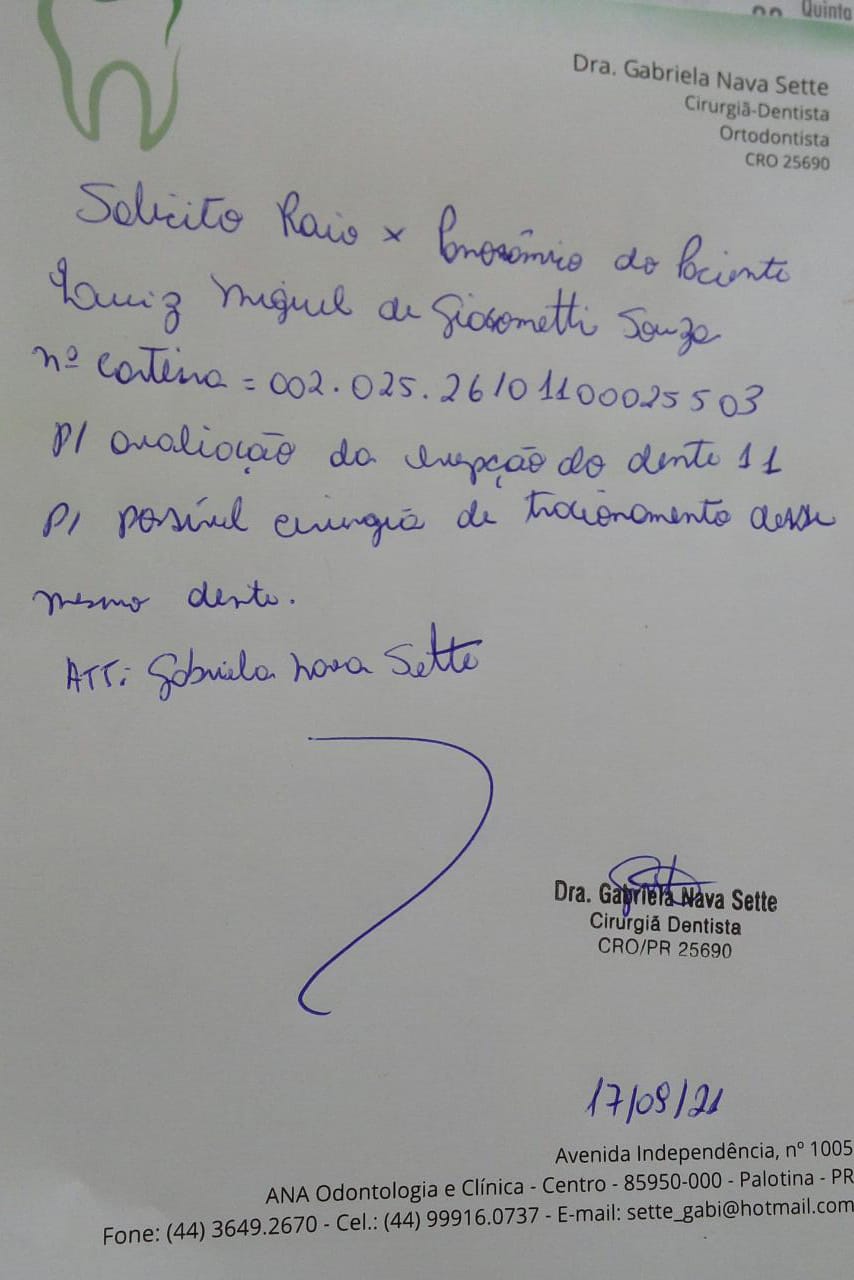 Quinta
Dra. Gabriela Nava Sette
Cirurgiã-Dentista
Ortodontista
CRO 25690
Solicito Raio x Panorâmico do Paciente
Luiz Miguel de Giacometti Souza
nº carteira = 002.025.26101100025503
p/ avaliação da erupção do dente 11
p/ possível cirurgia de tracionamento desse
mesmo dente.
ATT: Gabriela Nava Sette
Dra. Gabriela Nava Sette
Cirurgiã Dentista
CRO/PR 25690
17/09/21
Avenida Independência, nº 1005
ANA Odontologia e Clínica - Centro - 85950-000 - Palotina - PR
Fone: (44) 3649.2670 - Cel.: (44) 99916.0737 - E-mail: sette_gabi@hotmail.com